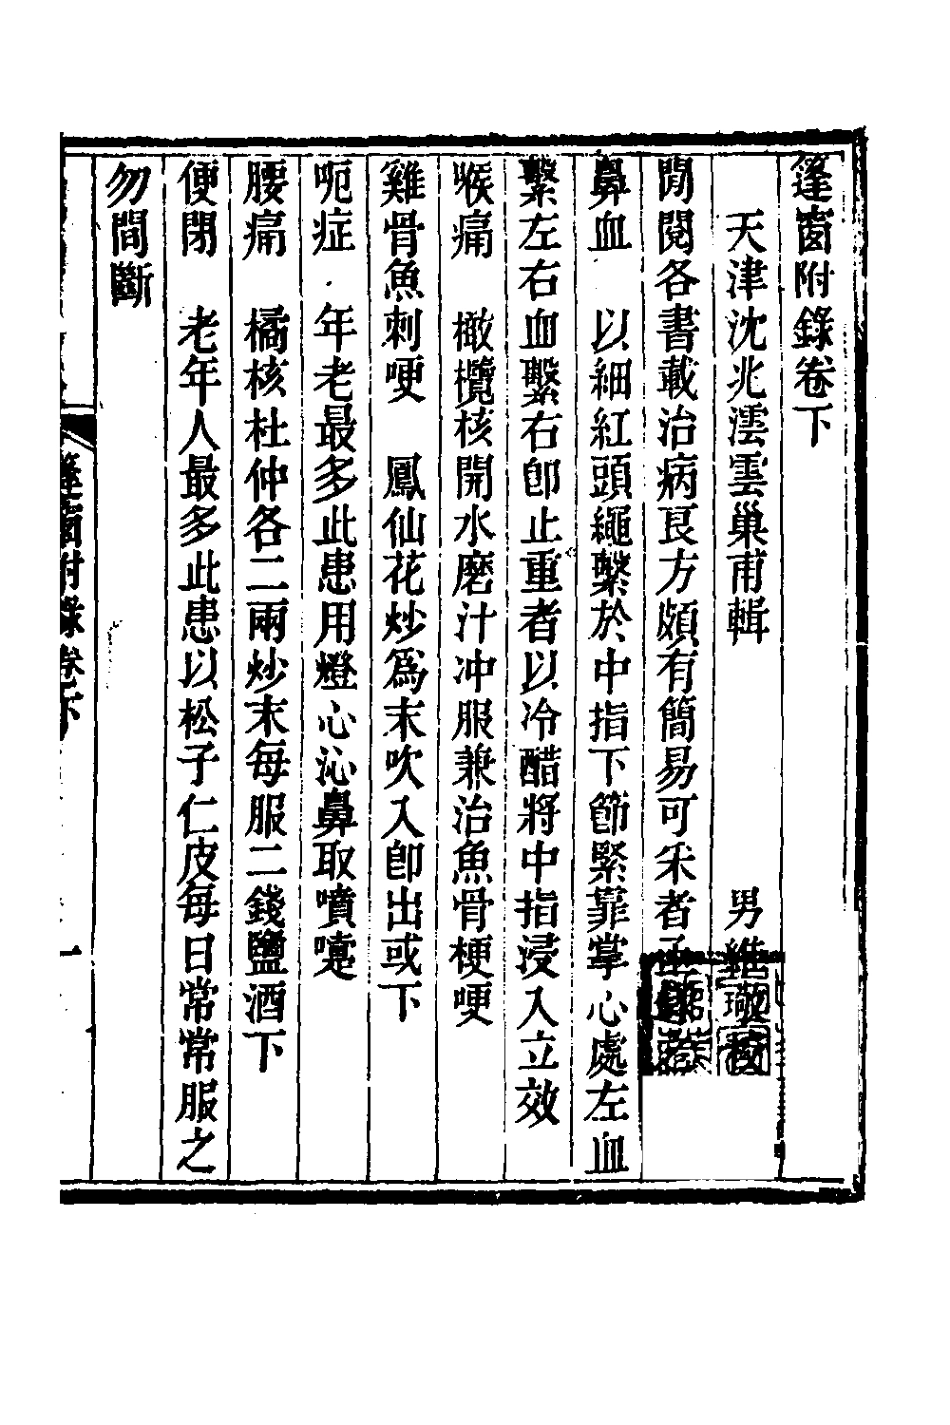 篷窗附錄卷下
天津沈兆澐雲巢甫輯　男維璥校
閒閱各書載治病良方頗有簡易可采者
鼻血　以細紅頭繩繫於中指下節緊靠掌心處左血
繫左右血繫右卽止重者以冷醋將中指浸入立效
喉痛　橄欖核開水磨汁冲服兼治魚骨梗哽
雞骨魚刺哽　鳳仙花炒爲末吹入卽出或下
呃症　年老最多此患用燈心沁鼻取噴嚏
腰痛　橘核杜仲各二兩炒末每服二錢鹽酒下
便閉　老年人最多此患以松子仁皮每日常常服之
勿間斷
篷窗附錄卷下
一